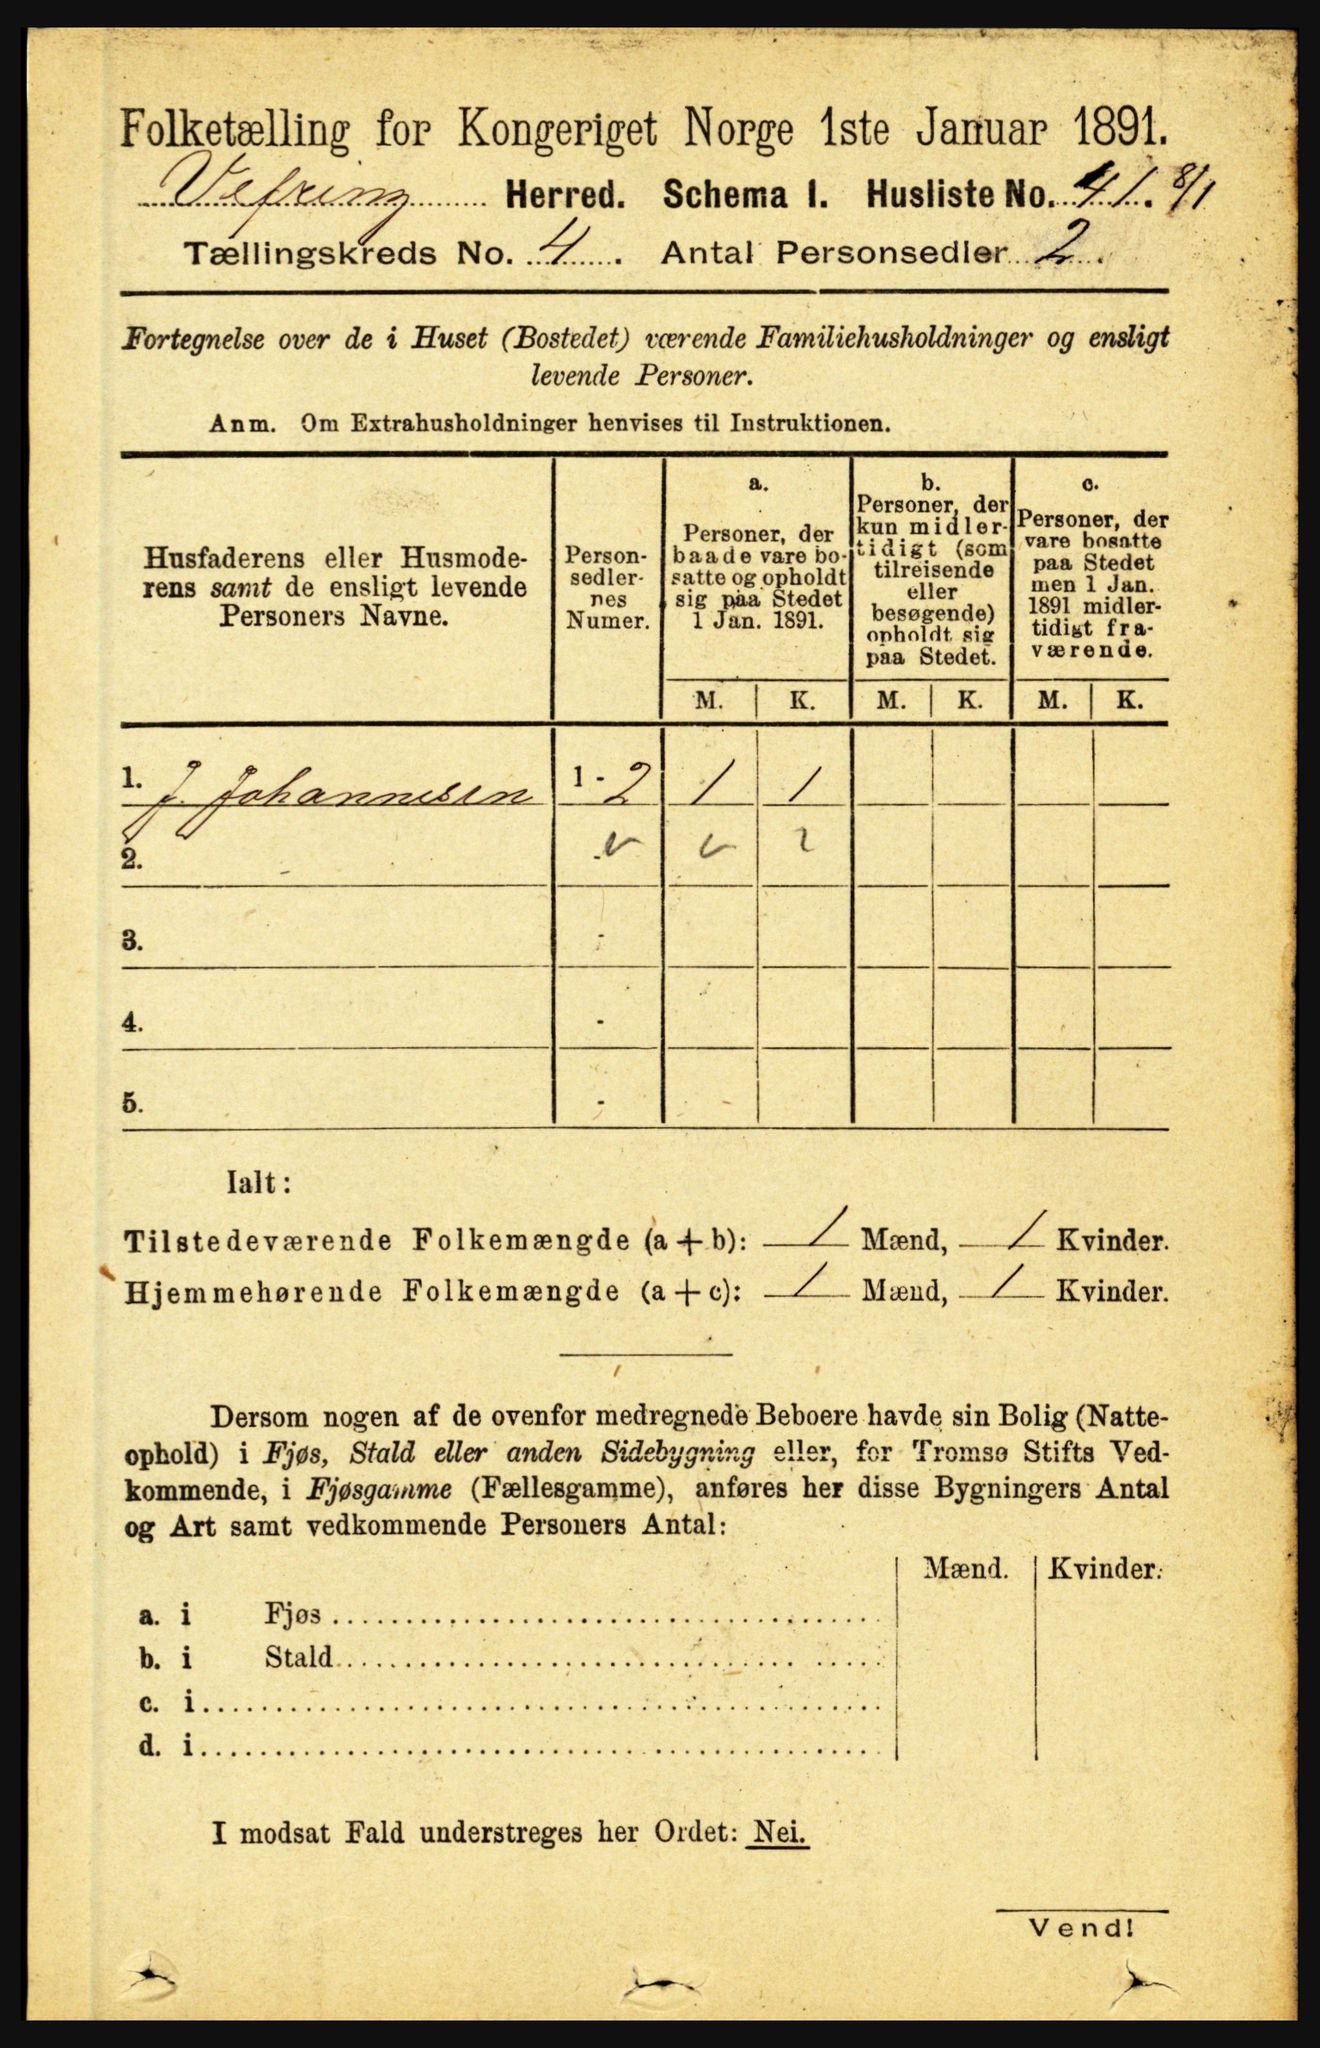 Folketælling for Kongeriget Norge 1ste Januar 1891.
Vefring Herred. Schema I. Husliste No. 41. 8/1
Tællingskreds No. 4. Antal Personsedler 2.
Fortegnelse over de i Huset (Bostedet) værende Familiehusholdninger og ensligt
levende Personer.
Anm. Om Extrahusholdninger henvises til Instruktionen.
Husfaderens eller Husmode-
rens samt de ensligt levende
Personers Navne.
Person-
sedler-
nes
Numer.
a.
Personer, der
baade vare bo-
satte og opholdt
sig paa Stedet
1 Jan. 1891.
b.
Personer, der
kun midler-
tidigt (som
tilreisende
eller
besøgende)
opholdt sig
paa Stedet.
c.
Personer, der
vare bosatte
paa Stedet
men 1 Jan.
1891 midler-
tidigt fra-
værende.
M. K. M. K. M. K.
1. J. Johannesen 1 - 2 1 1
2. -
3. -
4. -
5. -
Ialt:
Tilstedeværende Folkemængde (a + b): 1 Mænd, 1 Kvinder.
Hjemmehørende Folkemængde (a + c): 1 Mænd, 1 Kvinder.
Dersom nogen af de ovenfor medregnede Beboere havde sin Bolig (Natte-
ophold) i Fjøs, Stald eller anden Sidebygning eller, for Tromsø Stifts Ved-
kommende, i Fjøsgamme (Fællesgamme), anføres her disse Bygningers Antal
og Art samt vedkommende Personers Antal:
Mænd. Kvinder.
a. i Fjøs
b. i Stald
c. i
d. i
I modsat Fald understreges her Ordet: Nei.
Vend!